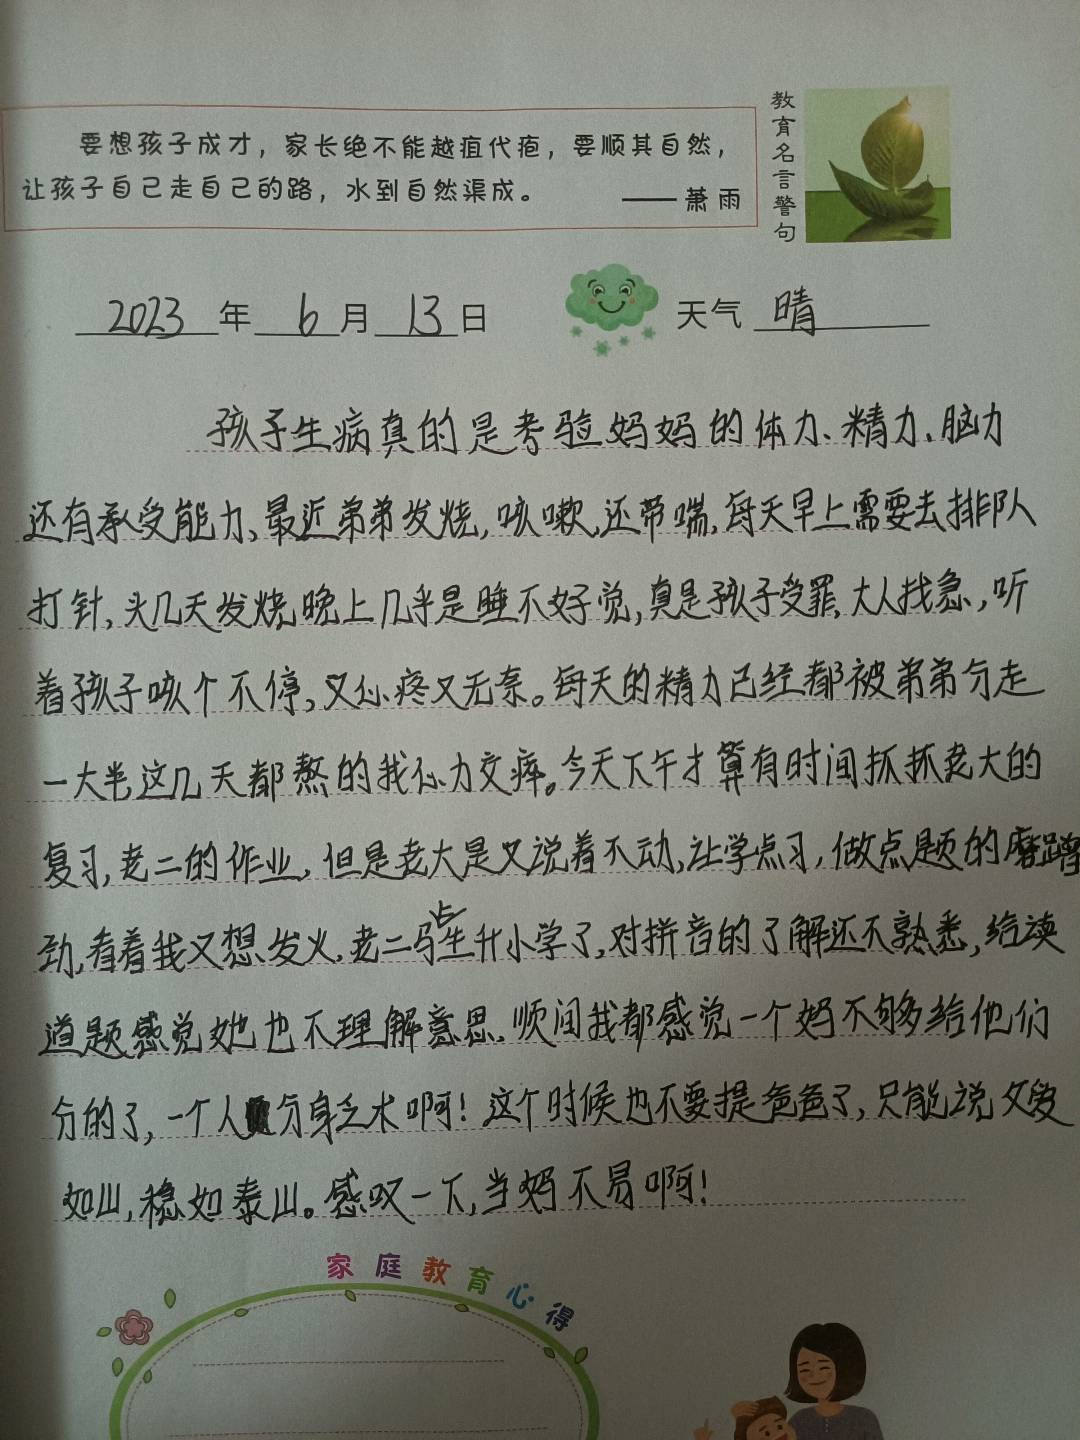 要想孩子成才，家长绝不能越疽代疱，要顺其自然，
让孩子自己走自己的路，水到自然渠成。
——萧雨
教育名言警句
2023年6月13日
天气 晴
孩子生病真的是考验妈妈的体力、精力、脑力
还有承受能力、最近弟弟发烧，咳嗽，还带喘，每天早上需要去排队
打针，头几天发烧，晚上几乎是睡不好觉，真是孩子受罪，大人找急，听
着孩子咳个不停，又心疼又无奈。每天的精力已经都被弟弟分走
一大半这几天都熬的我心力交瘁。今天下午才算有时间抓抓老大的
复习，老二的作业，但是老大是又说着不动，让学点习，做点题的磨蹭
劲，看着我又想发火，老二马上升小学了，对拼音的了解还不熟悉，给读
道题感觉她也不理解意思，顺间我都感觉一个妈不够给他们
分的了，一个人分身乏术啊！这个时候也不要提爸爸了，只能说父爱
如山，稳如泰山。感叹一下，当妈不易啊！
家庭教育心得